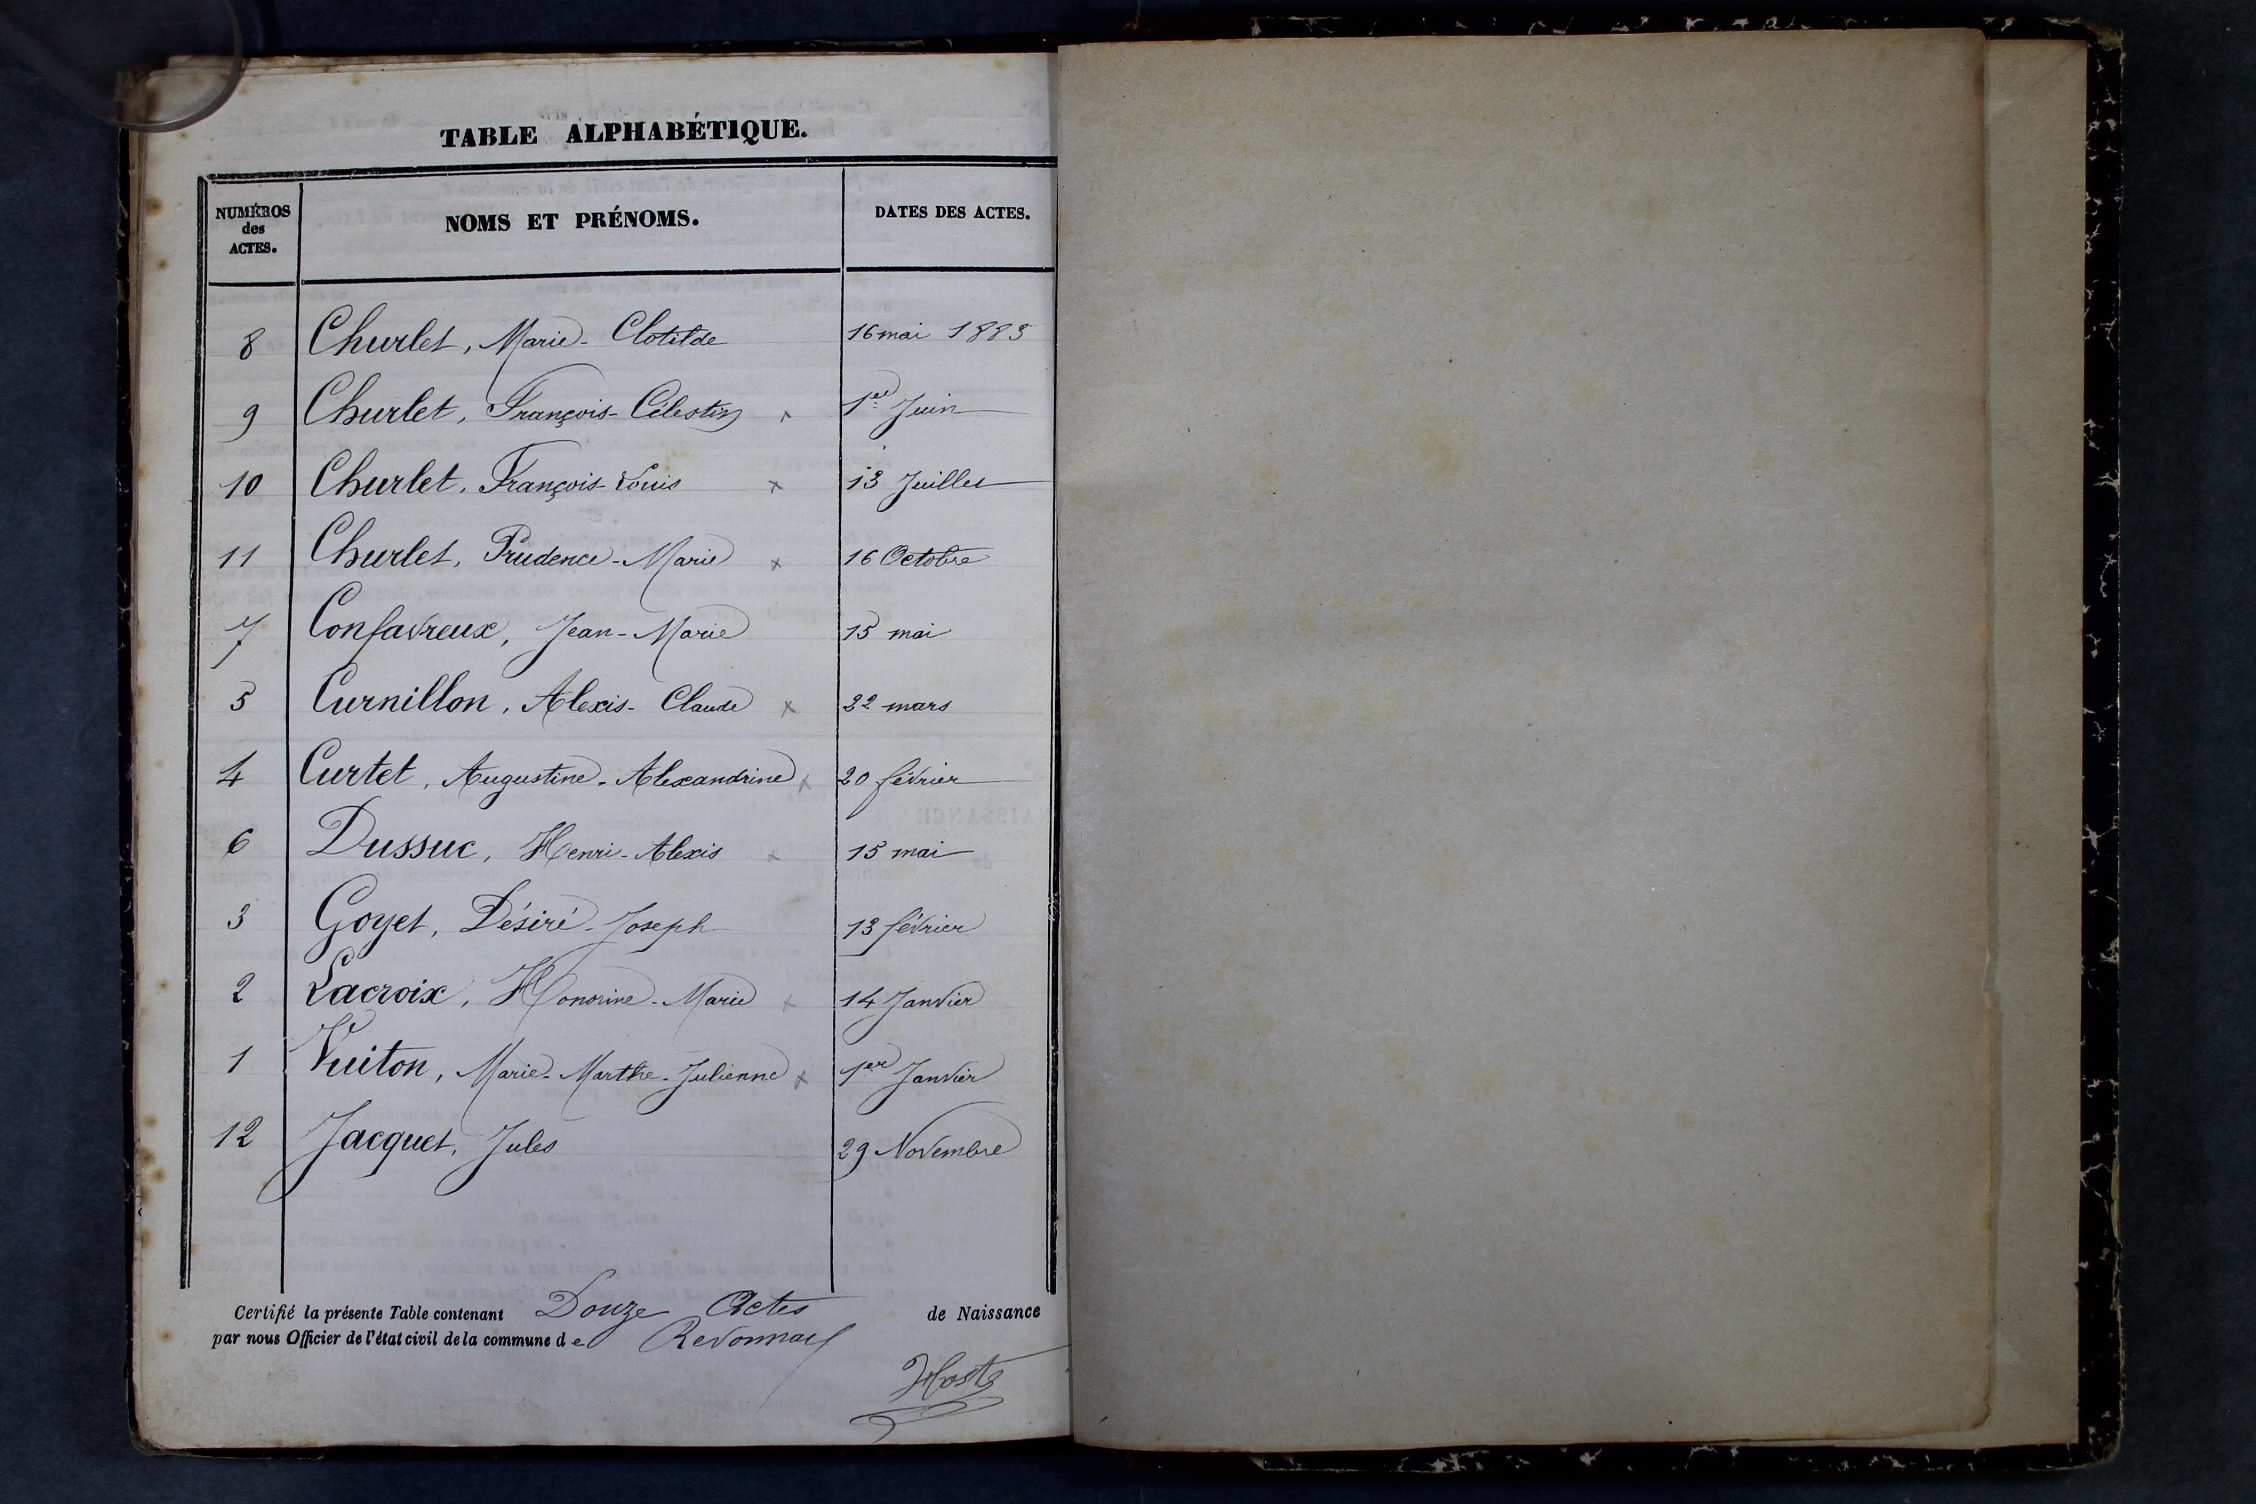 TABLE ALPHABÉTIQUE.
NUMÉROS des ACTES. NOMS ET PRÉNOMS. DATES DES ACTES.
8 Churlet, Marie-Clotilde 16 mai 1883
9 Churlet, François-Célestin x 1er Juin
10 Churlet, François-Louis x 13 Juillet
11 Churlet, Prudence-Marie x 16 Octobre
7 Confavreux, Jean-Marie 15 mai
5 Curnillon, Alexis-Claude x 22 mars
4 Curtet, Augustine-Alexandrine x 20 février
6 Dussuc, Henri-Alexis x 15 mai
3 Goyet, Désiré-Joseph 13 février
2 Lacroix, Honorine-Marie x 14 Janvier
1 Vuiton, Marie-Marthe-Julienne x 1er Janvier
12 Jacquet, Jules 29 Novembre
Certifié la présente Table contenant Douze Actes de Naissance
par nous Officier de l'état civil de la commune de Revonnas